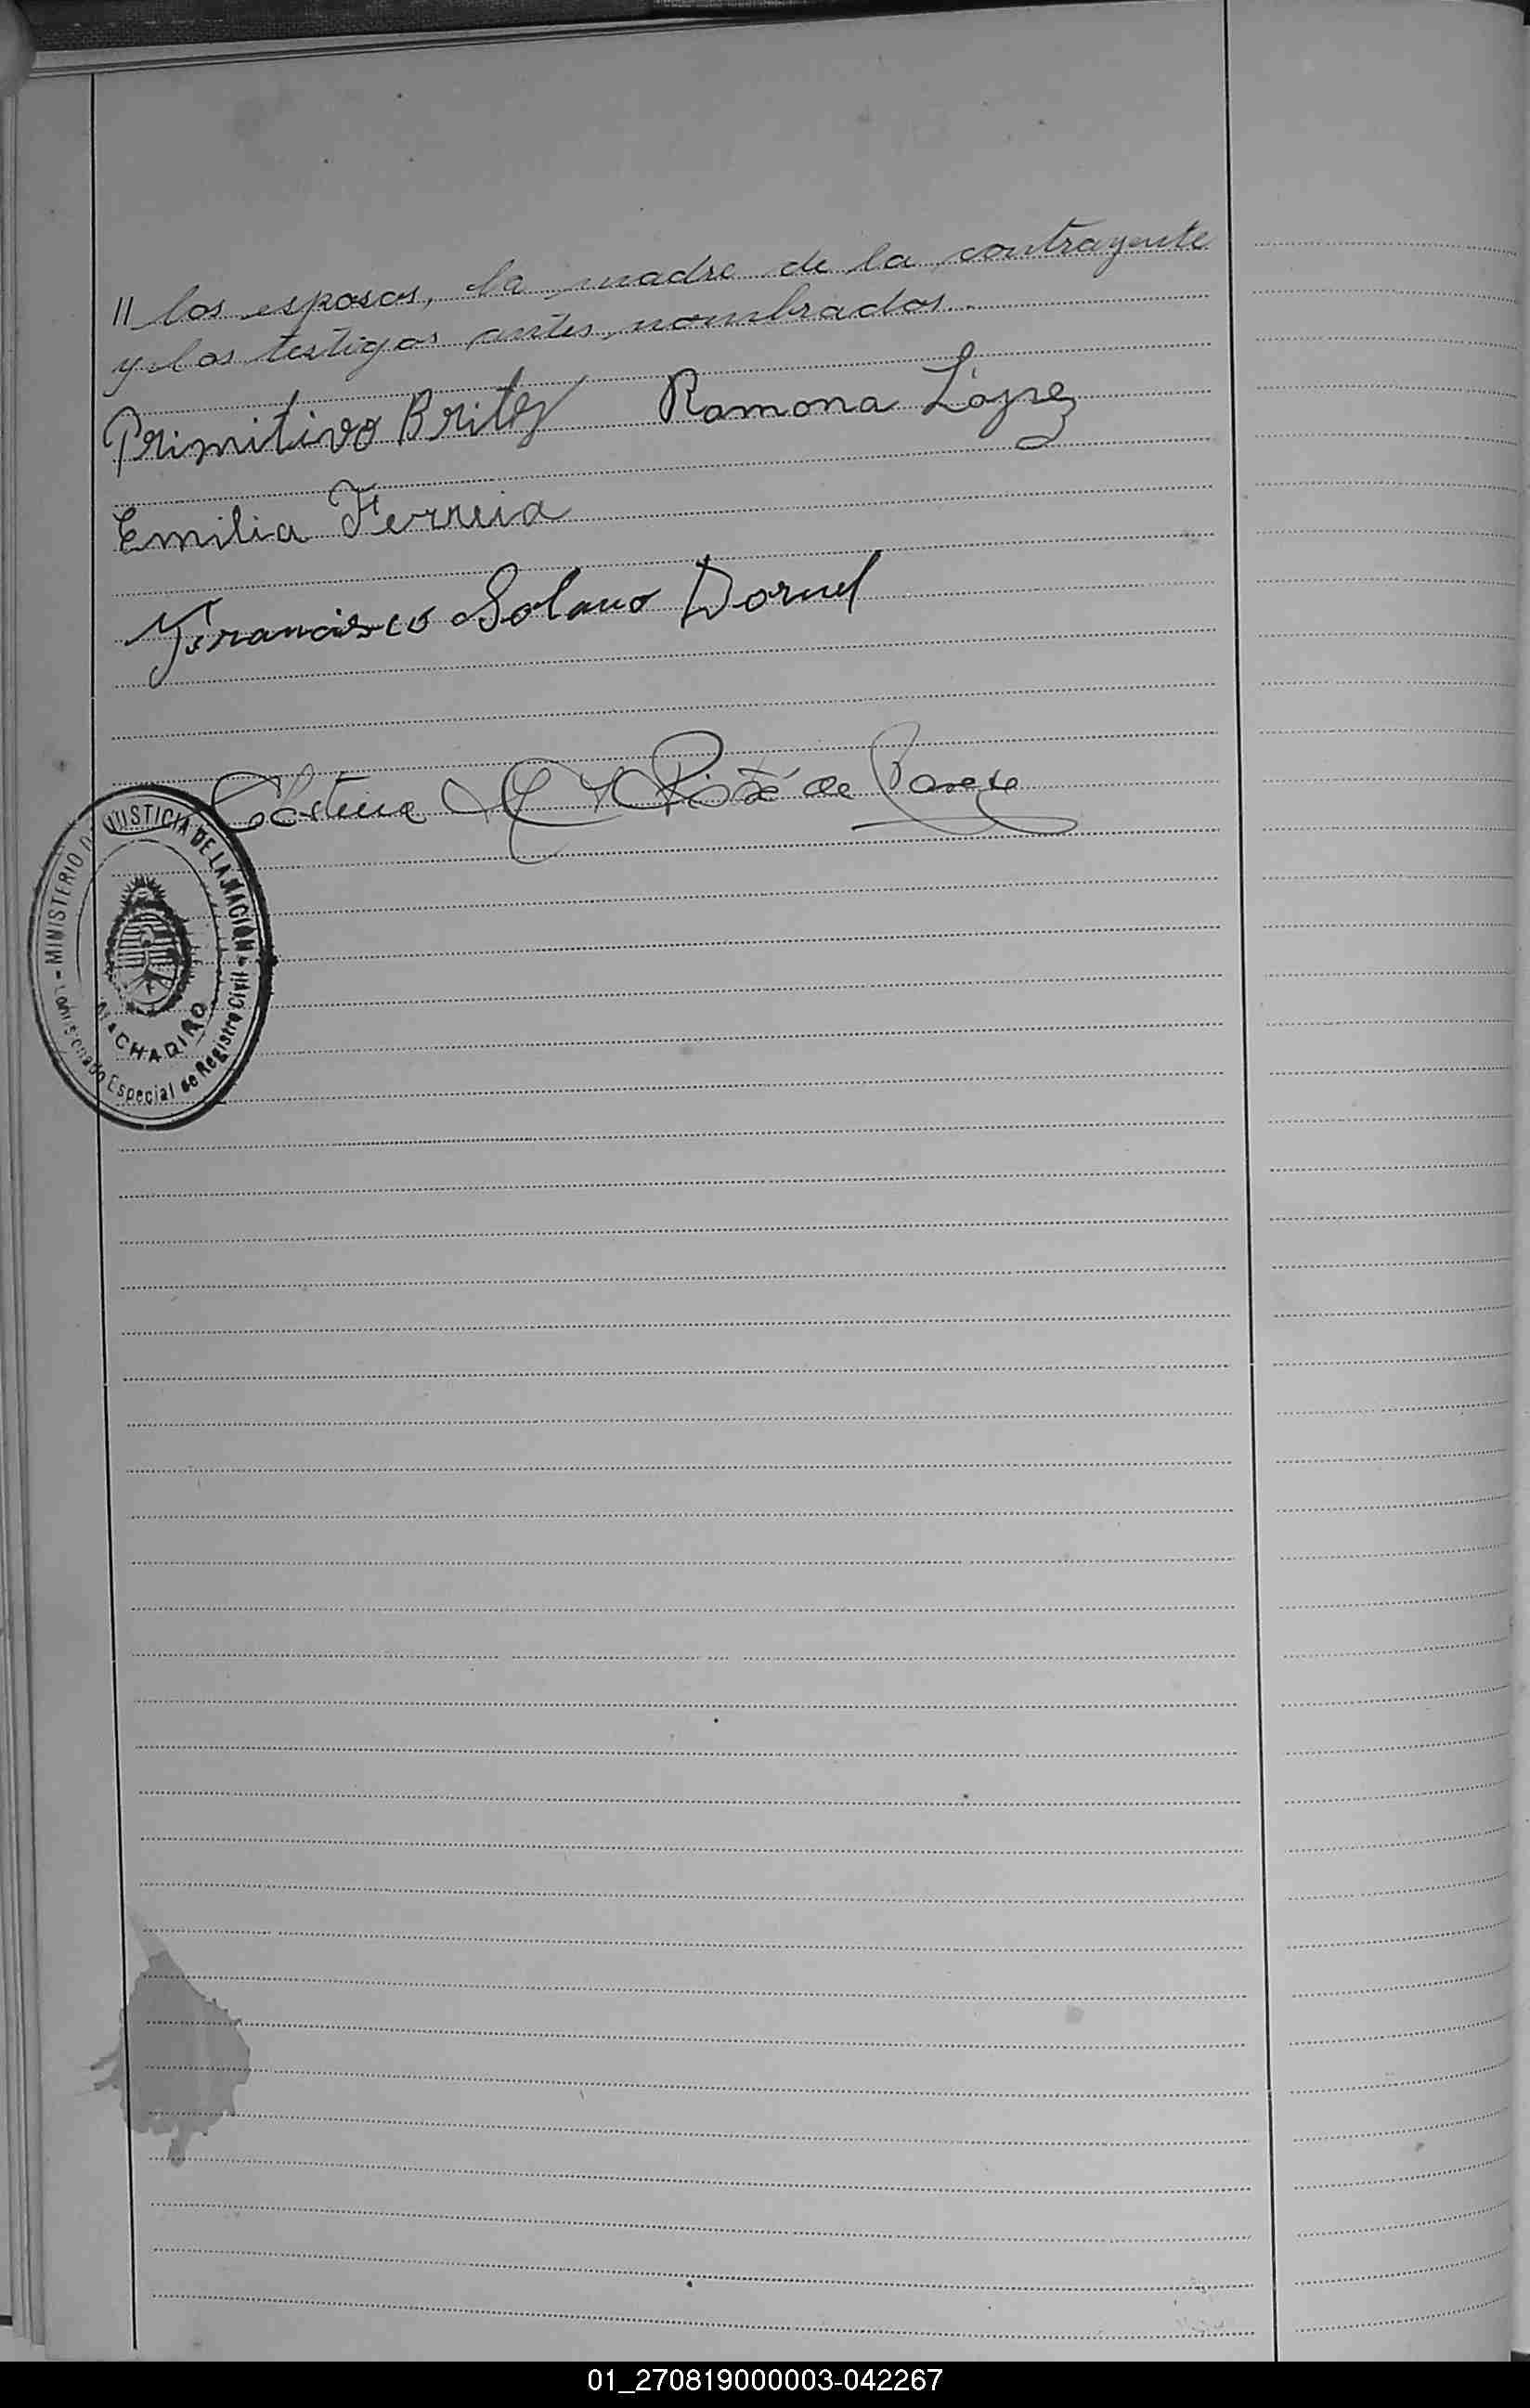 // los esposos, la madre de la contrayente
y los testigos antes nombrados.
Primitivo Britez Ramona López
Emilia Ferreia
Francisco Solano Dornel
de
MINISTERIO DE JUSTICIA DE LA NACIÓN
Comisionado Especial de Registro Civil
CHAQUEÑO
01_270819000003-042267